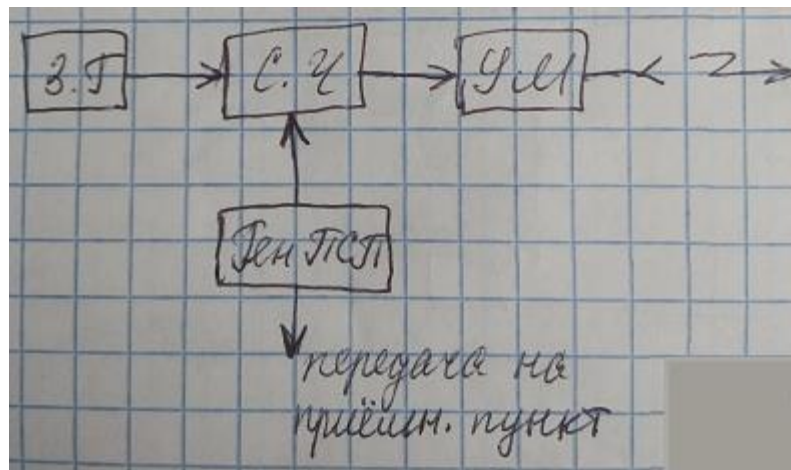 З.Г
С.Ч
УМ
Ген ПСП
передача на
приёмн. пункт